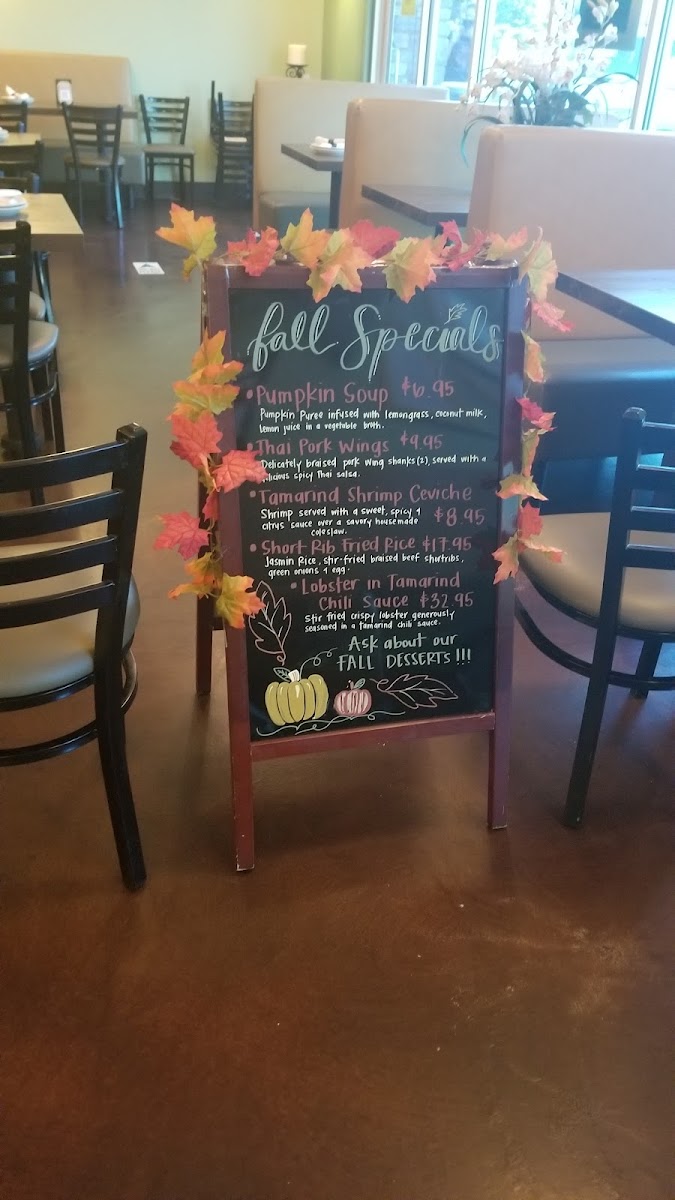 fall Specials
• Pumpkin Soup $6.95
Pumpkin Puree infused with lemongrass, coconut milk,
lemon juice in a vegetable broth.
• Thai Pork Wings $9.95
Delicately braised pork wing shanks(2), served with a
licious spicy Thai salsa.
• Tamarind Shrimp Ceviche
Shrimp served with a sweet, spicy &
citrus sauce over a savory housemade $8.95
coleslaw.
• Short Rib Fried Rice $17.95
Jasmin Rice, stir-fried braised beef shortribs,
green onions & egg.
• Lobster in Tamarind
Chili Sauce $32.95
Stir fried crispy lobster generously
seasoned in a tamarind chili sauce.
Ask about our
FALL DESSERTS!!!